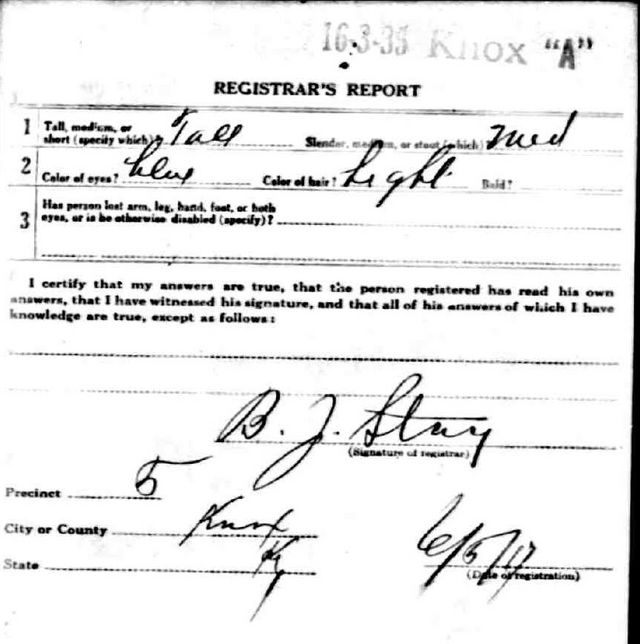 16-3-35 Knox "A"
REGISTRAR'S REPORT
1 Tall, medium, or short (specify which)? Tall Slender, medium, or stout (which)? Med
2 Color of eyes? blue Color of hair? Light Bald?
3 Has person lost arm, leg, hand, foot, or both eyes, or is he otherwise disabled (specify)?
I certify that my answers are true, that the person registered has read his own
answers, that I have witnessed his signature, and that all of his answers of which I have
knowledge are true, except as follows:
B. J.
(Signature of registrar)
Precinct 5
City or County Knox
State Ky 6/5/17
(Date of registration)